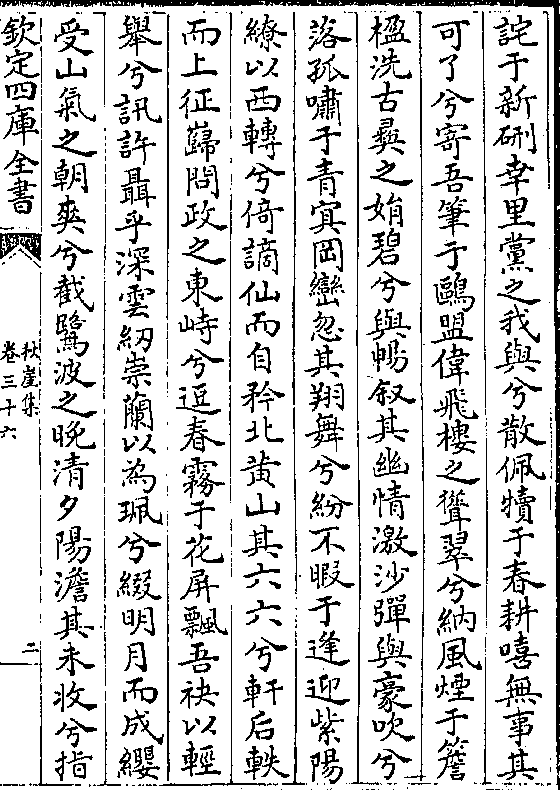 詫于新硎幸里黨之我與兮散佩犢于春耕嘻無事其
可了兮寄吾筆于鷗盟偉飛樓之聳翠兮納風煙于簷
楹洗古彞之娟碧兮與暢叙其幽情激沙彈與豪吹兮
落孤嘯于青冥岡巒忽其翔舞兮紛不暇于逢迎紫陽
繚以西轉兮倚謫仙而自矜北黄山其六六兮軒后軼
而上征巋問政之東峙兮逗春霧于花屏飄吾袂以輕
舉兮訊許聶乎深雲紉崇蘭以為珮兮綴明月而成纓
受山氣之朝爽兮截鷺波之晚清夕陽澹其未收兮指
欽定四庫全書
秋崖集
卷三十六
二